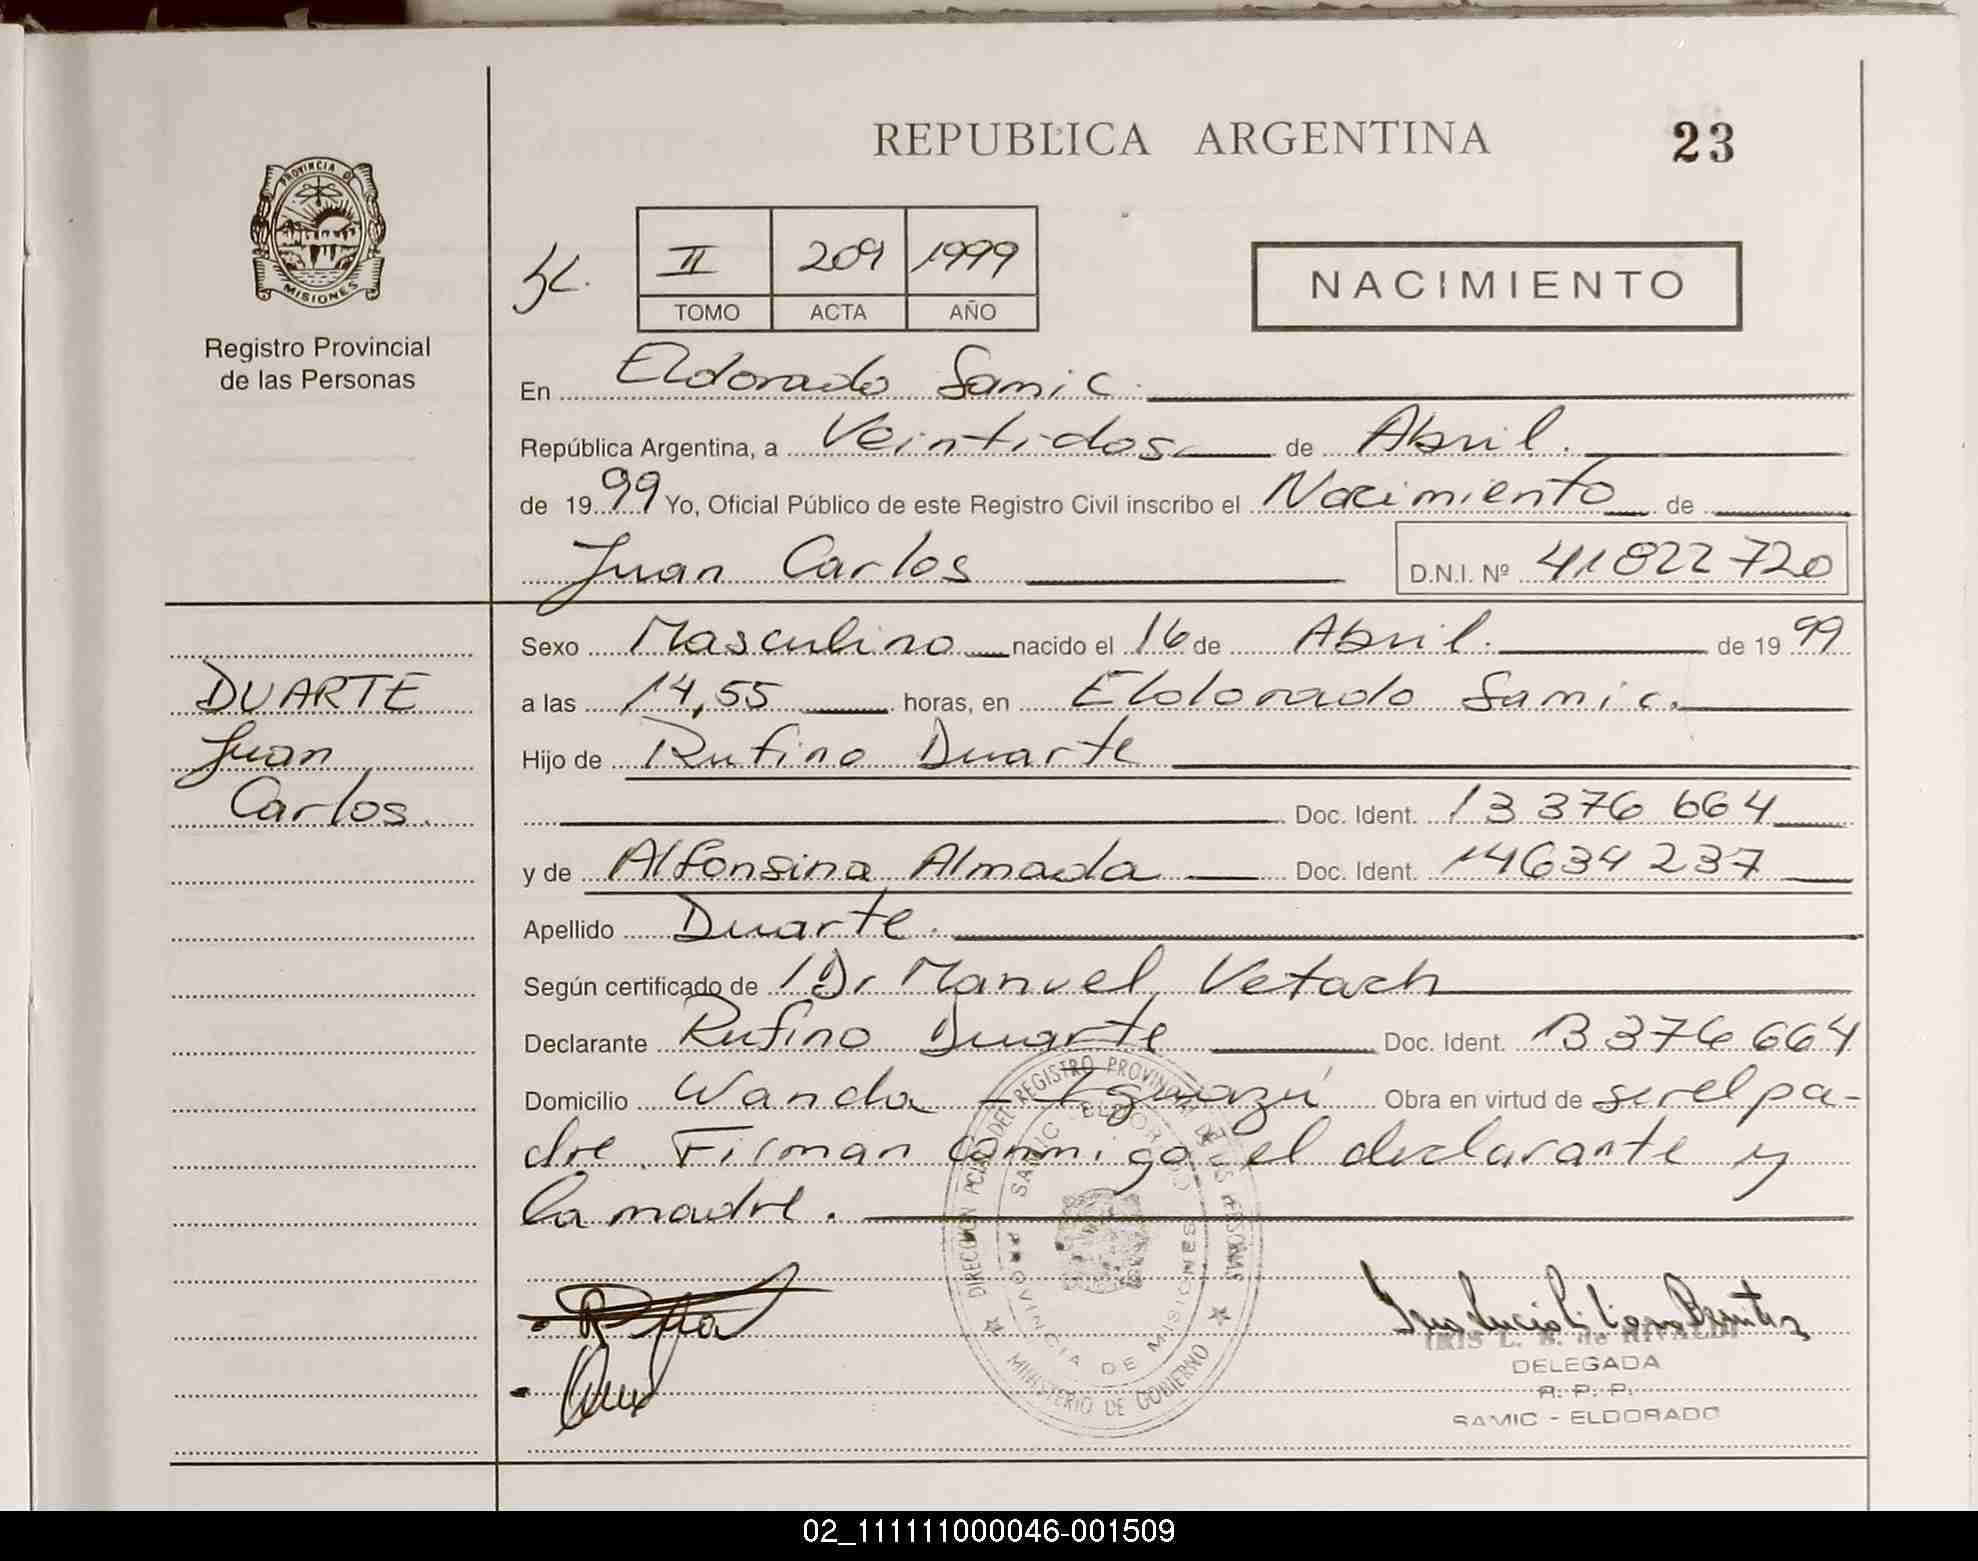 REPUBLICA ARGENTINA
23
PROVINCIA DE
MISIONES
Registro Provincial
de las Personas
II 209 1999
TOMO ACTA AÑO
NACIMIENTO
En Eldorado Samic.
República Argentina, a Veintidos de Abril.
de 1999 Yo, Oficial Público de este Registro Civil inscribo el Nacimiento de
Juan Carlos D.N.I. Nº 41822720
Sexo Masculino nacido el 16 de Abril. de 1999
DUARTE
Juan
Carlos.
a las 14,55 horas, en Eldorado Samic.
Hijo de Rufino Duarte
Doc. Ident. 13 376 664
y de Alfonsina Almada Doc. Ident. 14634 237
Apellido Duarte.
Según certificado de Dr Manuel Vetach
Declarante Rufino Duarte Doc. Ident. 13 376 664
Domicilio Wanda - Iguazú Obra en virtud de ser el pa-
dre. Firman conmigo el declarante y
la madre.
DIRECCION PCIAL DEL REGISTRO PROVINCIAL DE LAS PERSONAS
SAMIC ELDORADO
PROVINCIA DE MISIONES
MINISTERIO DE GOBIERNO
IRIS L. B. de RIVALDI
DELEGADA
R. P. P.
SAMIC - ELDORADO
02_111111000046-001509